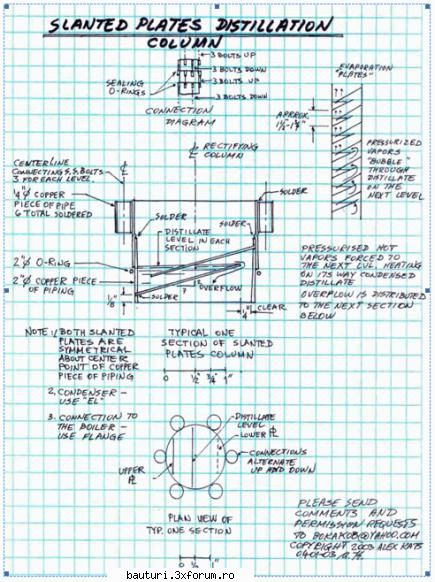 SLANTED PLATES DISTILLATION
COLUMN
3 BOLTS UP
3 BOLTS DOWN
3 BOLTS UP
3 BOLTS DOWN
SEALING
O-RINGS
CONNECTION
DIAGRAM
EVAPORATION
"PLATES"
APRROX.
1½-1¾"
PRESSURIZED
VAPORS
"BUBBLE"
THROUGH
DISTILLATE
ON THE
NEXT LEVEL
RECTIFYING
COLUMN
CENTERLINE
CONNECTING S.S. BOLTS
3 FOR EACH LEVEL.
¼"Ø COPPER
PIECE OF PIPE
6 TOTAL SOLDERED
2"Ø O-RING
2"Ø COPPER PIECE
OF PIPING
⅛"
SOLDER
SOLDER
SOLDER
DISTILLATE
LEVEL IN EACH
SECTION
OVERFLOW
SOLDER
¼"
CLEAR
PRESSURISED HOT
VAPORS FORCED TO
THE NEXT LVL. HEATING
ON ITS WAY CONDENSED
DISTILLATE
OVERFLOW IS DISTRIBUTED
TO THE NEXT SECTION
BELOW
NOTE: 1/ BOTH SLANTED
PLATES ARE
SYMMETRICAL
ABOUT CENTER
POINT OF COPPER
PIECE OF PIPING
2. CONDENSER -
USE "EL"
3. CONNECTION TO
THE BOILER -
USE FLANGE
TYPICAL ONE
SECTION OF SLANTED
PLATES COLUMN
0 ½" ¾" 1"
DISTILLATE
LEVEL
LOWER PL
CONNECTIONS
ALTERNATE
UP AND DOWN
UPPER
PL
PLAN VIEW OF
TYP. ONE SECTION
0 ¼" 1"
PLEASE SEND
COMMENTS AND
PERMISSION REQUESTS
TO BOKAKOB@YAHOO.COM
COPYRIGHT 2003 ALEX KATS
bauturi.3xforum.ro